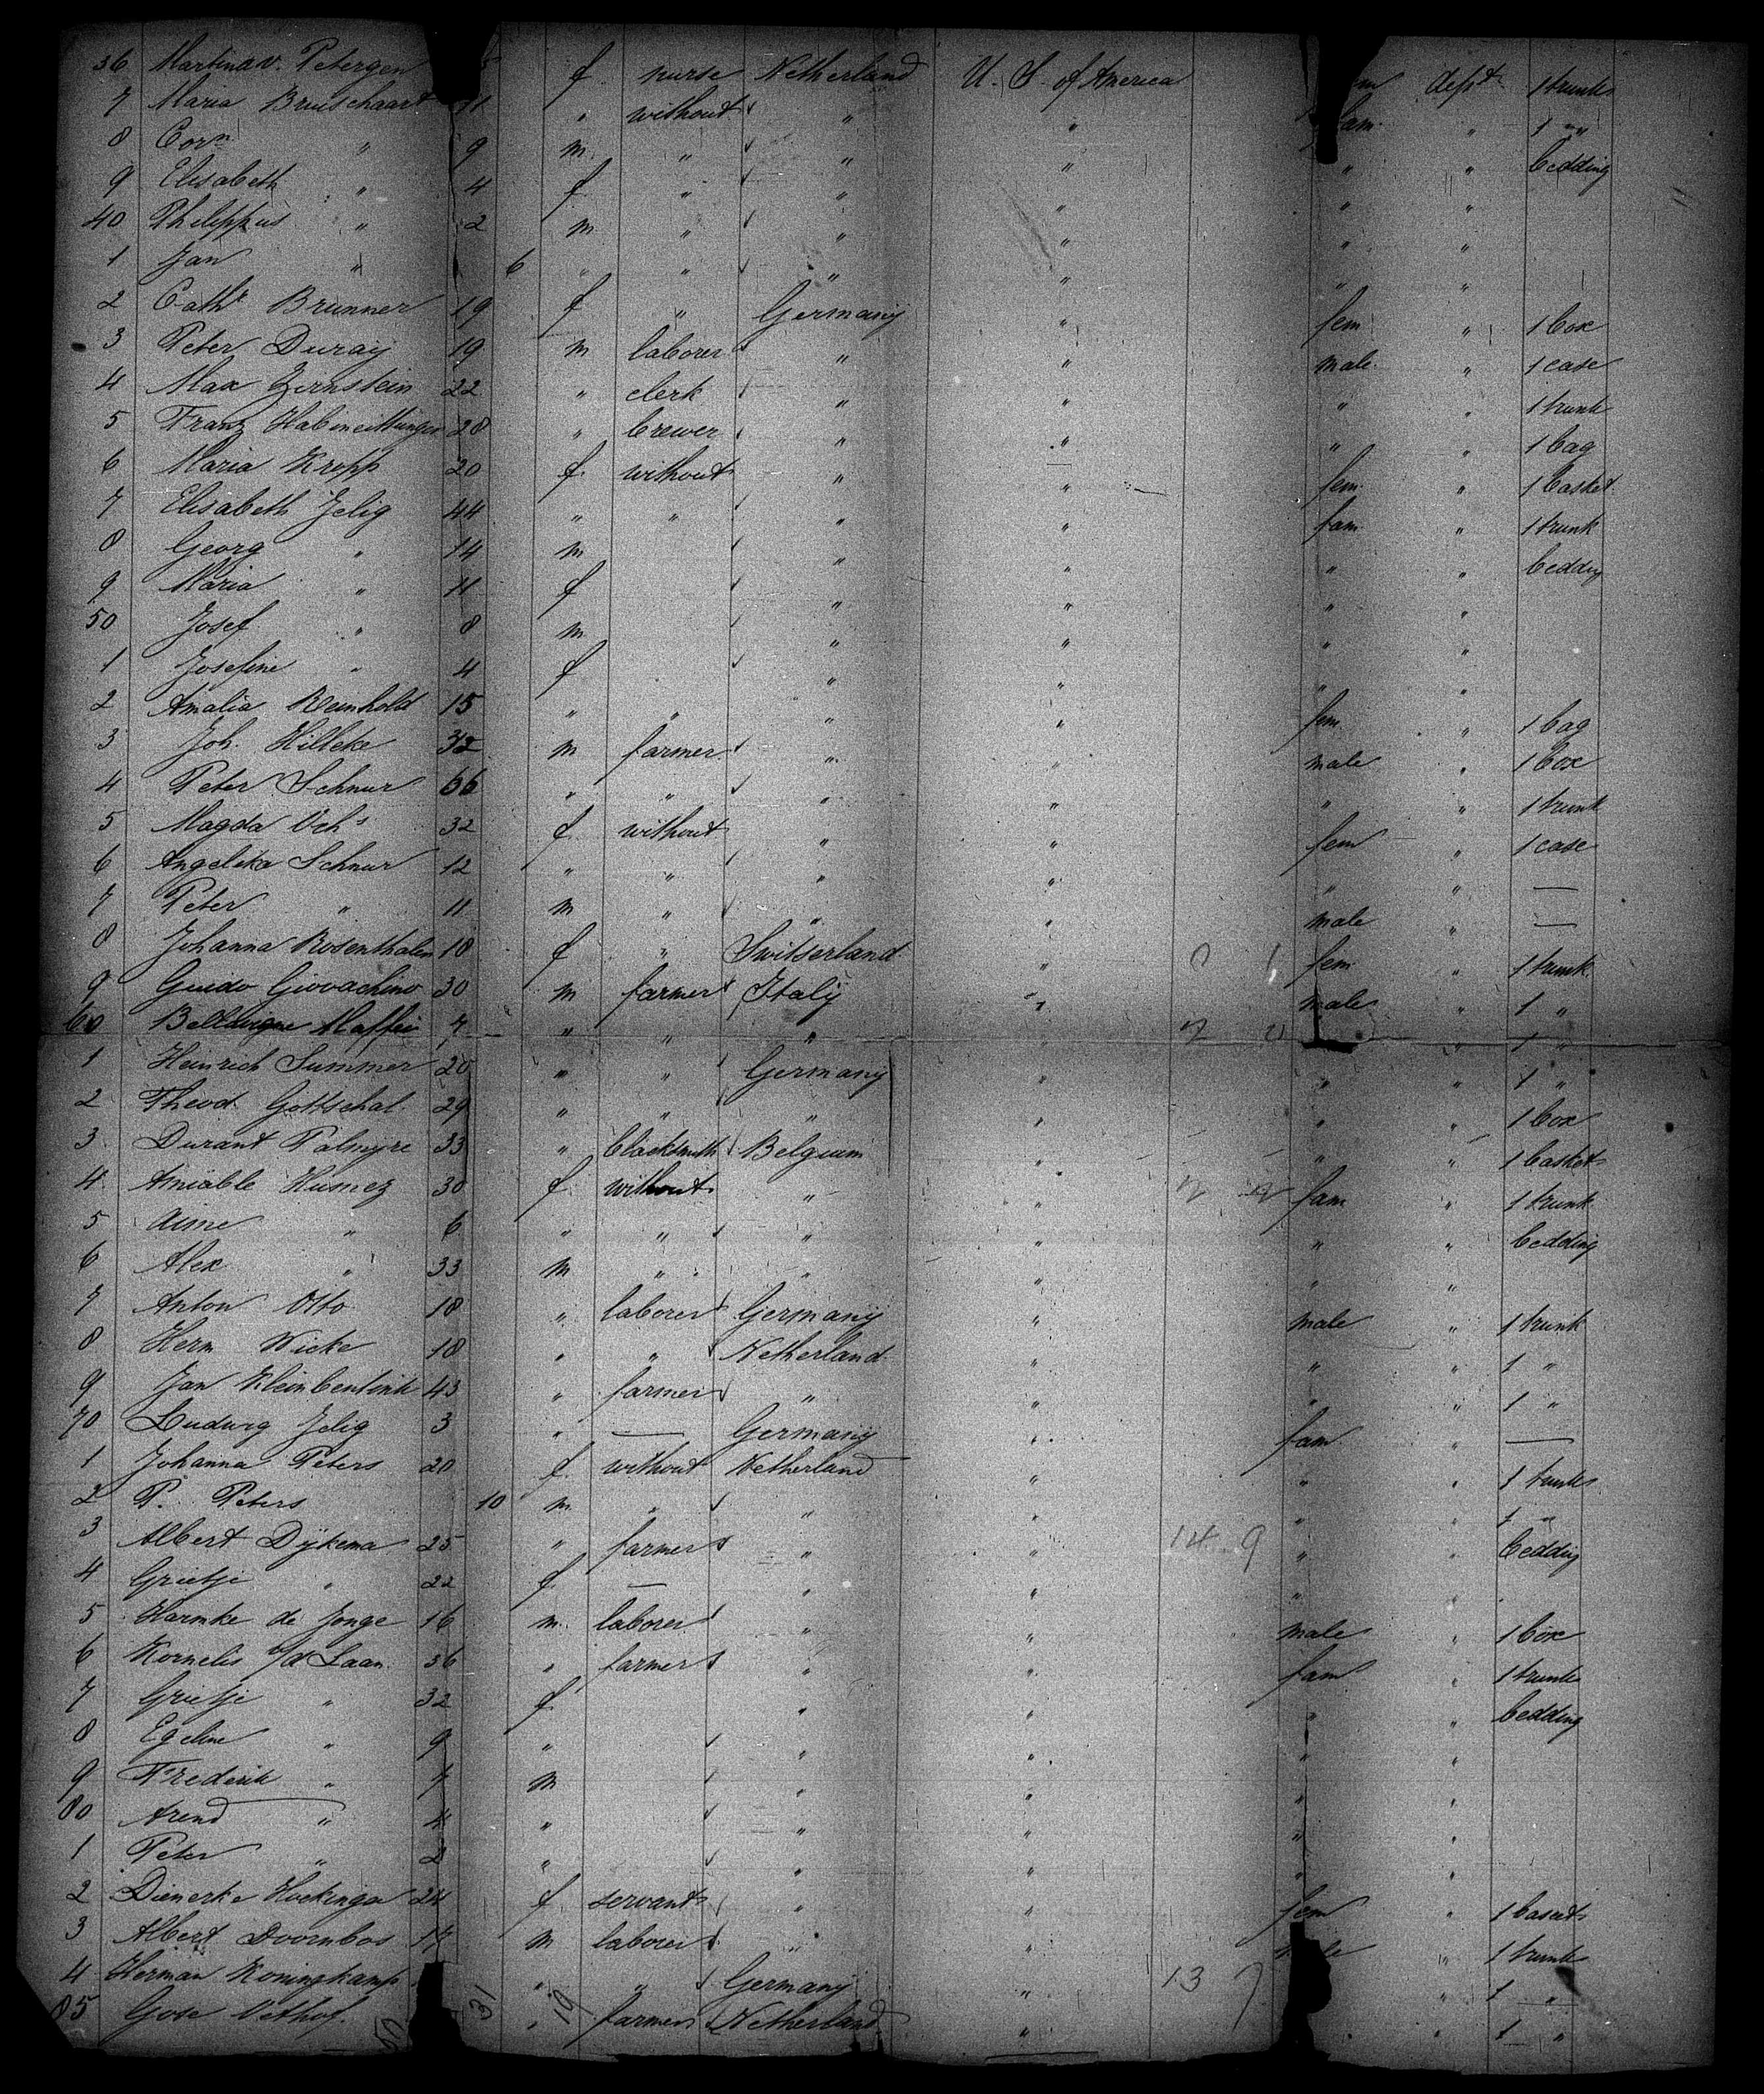 36 Martina v. Petergen 5 f nurse Netherland U. S. of America em dept 1 trunk
7 Maria Bruischaart 31 " without " " fam. " 1 "
8 Corn " 9 m. " " " " " bedding
9 Elisabeth " 4 f " " " " "
40 Philippus " 2 m " " " " "
1 Jan " 6 " " " " " "
2 Cathr Brunner 19 f " Germany " fem " 1 box
3 Peter Duray 19 m laborer " " male " 1 case
4 Max 22 " clerk " " " " 1 trunk
5 Franz 28 " brewer " " " " 1 bag
6 Maria Kropp 20 f without " " fem " 1 basket
7 Elisabeth Jelig 44 " " " " fam " 1 trunk
8 Georg " 14 m " " " " bedding
9 Maria " 11 f " " " "
50 Josef " 8 m " " " "
1 Josefine " 4 f " " " "
2 Amalia Reinhold 15 " " " " fem " 1 bag
3 Joh. Hilleke 32 m farmer " " male " 1 box
4 Peter Schnur 66 " " " " " " 1 trunk
5 Magda Ochs 32 f without " " fem " 1 case
6 Angelika Schnur 12 " " " " " " —
7 Peter " 11 m " " " male " —
8 Johanna Rosenthaler 18 f " Switserland " 1 fem " 1 trunk
9 Guido Giovachino 30 m farmer Italy " male " 1 "
60 Maffei 7 " " " " " " 1 "
1 Heinrich Summer 20 " " Germany " " " 1 "
2 Theod. Gottschal. 29 " " " " " " 1 box
3 Durant Palmyre 33 " blacksmith Belgium " " " 1 basket
4 Amiable Humez 30 f without " " fam " 1 trunk
5 Aime " 6 " " " " " " bedding
6 Alex " 33 m " " " " "
7 Anton Otto 18 " laborer Germany " male " 1 trunk
8 Herm Wicke 18 " " Netherland " " " 1 "
9 Jan Kleinbentink 43 " farmer " " " " 1 "
70 Ludwig Jelig 3 " — Germany " fam " —
1 Johanna Peters 20 f. without Netherland " " " 1 trunk
2 P. Peters 10 m " " " " " 1 "
3 Albert Dijkema 25 " farmer " " 14 9 " " bedding
4 Grietje " 22 f — " " " "
5 Harmke de Jonge 16 m. laborer " " male " 1 box
6 Kornelis v/d Laan 36 " farmer " " fam " 1 trunk
7 Grietje " 32 f " " " " bedding
8 Egeline " 9 " " " " "
9 Frederik " 7 m " " " "
80 Arend " 4 " " " " "
1 Peter " 2 " " " " "
2 Dienerke Hoekinga 24 f servant " " fem "
3 Albert Doornbos 17 m laborer " " " 1 trunk
4 Herman Koningkamp " " Germany " 13 7 " 1 "
85 Gose Vethof. 31 19 " farmer Netherland " " 1 "